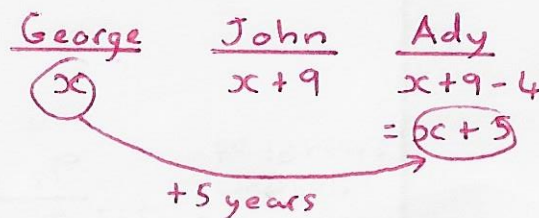 George John Ady
x x+9 x+9-4
= x+5
+5 years